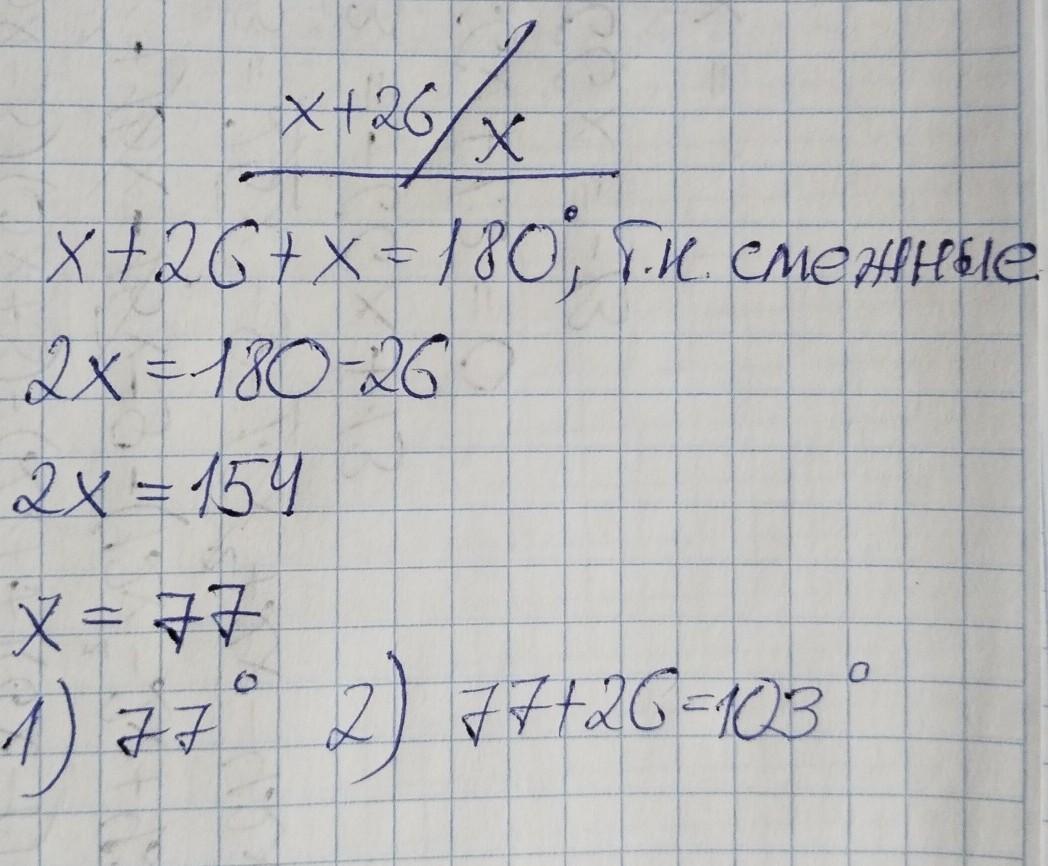 x+26 x
x+26+x=180°, т.к. смежные
2x=180-26
2x=154
x=77
1) 77° 2) 77+26=103°